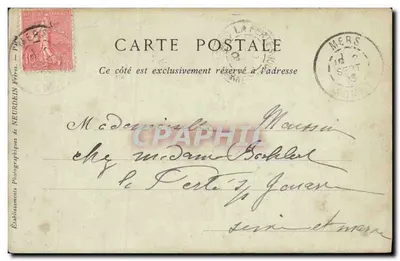 CARTE POSTALE
Ce côté est exclusivement réservé à l'adresse
MERS
Mademoiselle Maussin
chez madame
la Ferté s/s Jouarre
seine et marne
CPAPHIL
Etablissements Photographiques de NEURDEIN Frères. - Paris